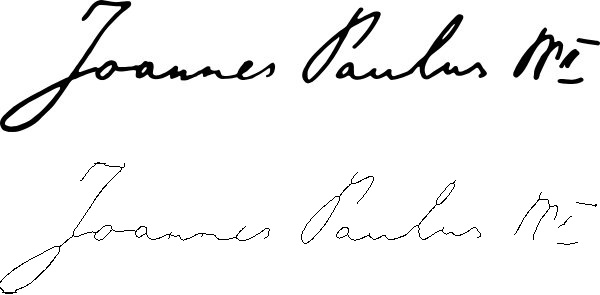 Joannes Paulus PP II
Joannes Paulus PP II